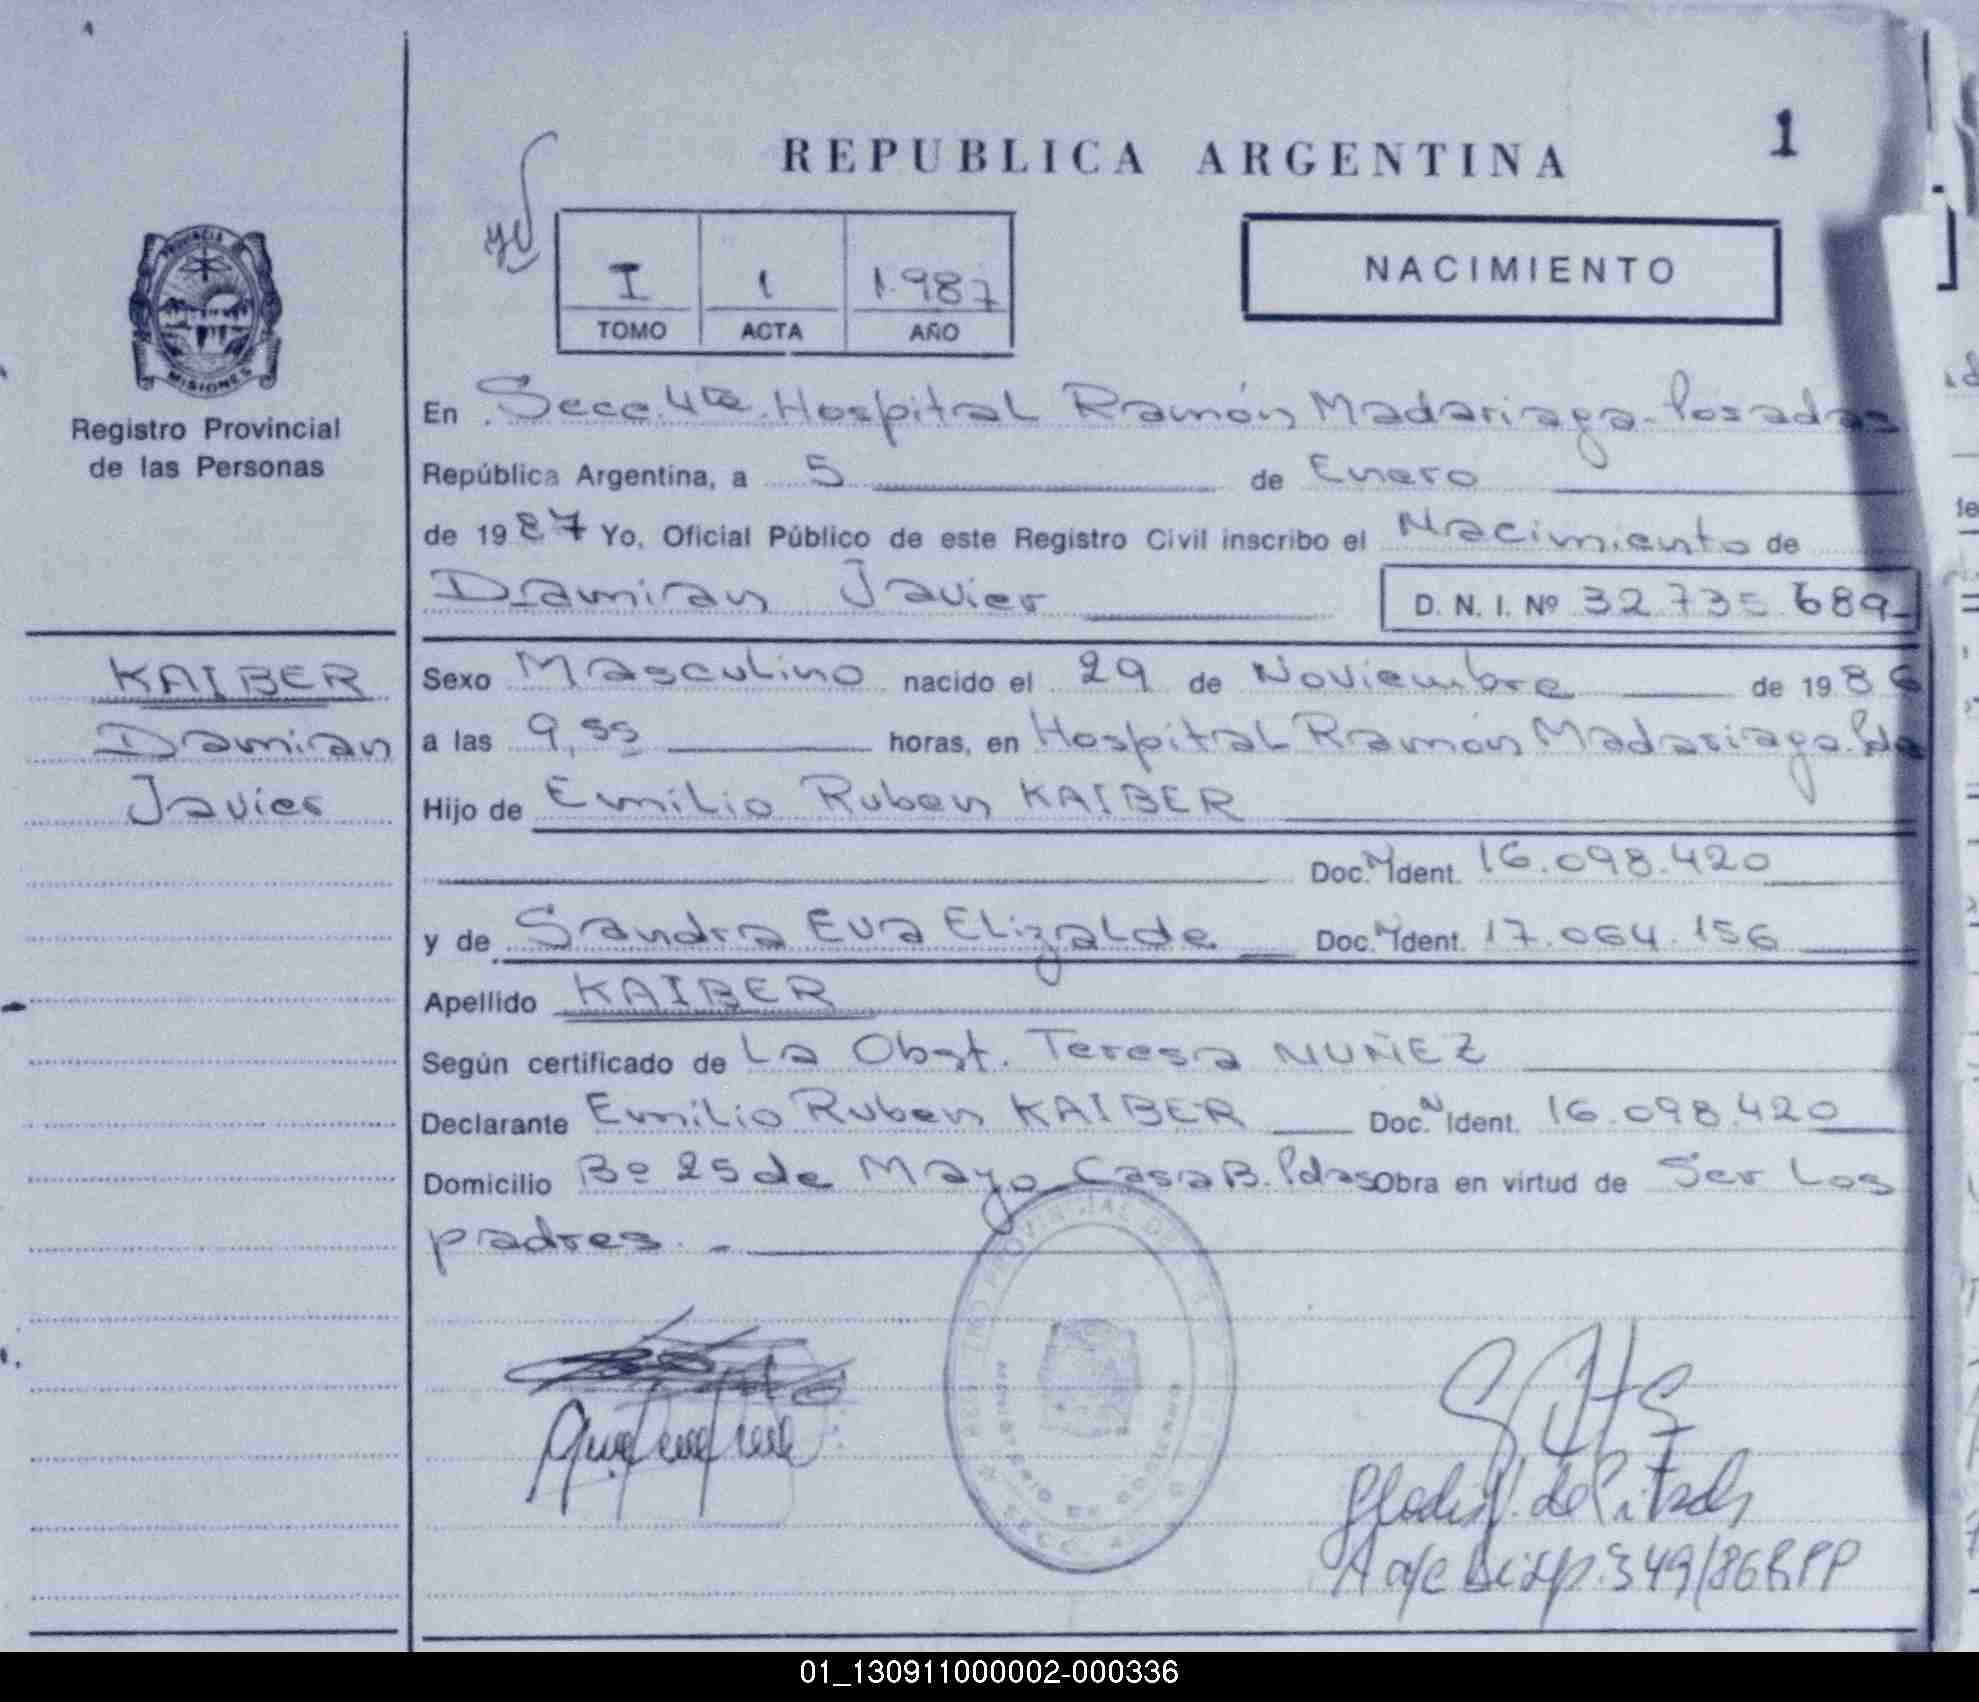 REPUBLICA ARGENTINA
1
I 1 1.987
TOMO ACTA AÑO
NACIMIENTO
PROVINCIA DE
MISIONES
Registro Provincial
de las Personas
En Secc. 4ta. Hospital Ramón Madariaga - Posadas
República Argentina, a 5 de Enero
de 1987 Yo, Oficial Público de este Registro Civil inscribo el Nacimiento de
Damian Javier D. N. I. Nº 32.735.689
KAIBER
Damian
Javier
Sexo Masculino nacido el 29 de Noviembre de 1986
a las 9,55 horas, en Hospital Ramón Madariaga. Pdas
Hijo de Emilio Ruben KAIBER
Doc. N Ident. 16.098.420
y de Sandra Eva Elizalde Doc. N Ident. 17.064.156
Apellido KAIBER
Según certificado de La Obst. Teresa NUÑEZ
Declarante Emilio Ruben KAIBER Doc. N Ident. 16.098.420
Domicilio Bº 25 de Mayo Casa B. Pdas Obra en virtud de Ser Los
padres. -
A a/c Disp. 349/86 R.P.P
01_130911000002-000336